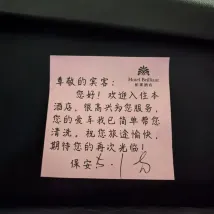 Hotel Brilliant
尊敬的宾客：
您好！欢迎入住本
酒店，很高兴为您服务，
您的爱车我已简单帮您
清洗，祝您旅途愉快，
期待您的再次光临！
保安